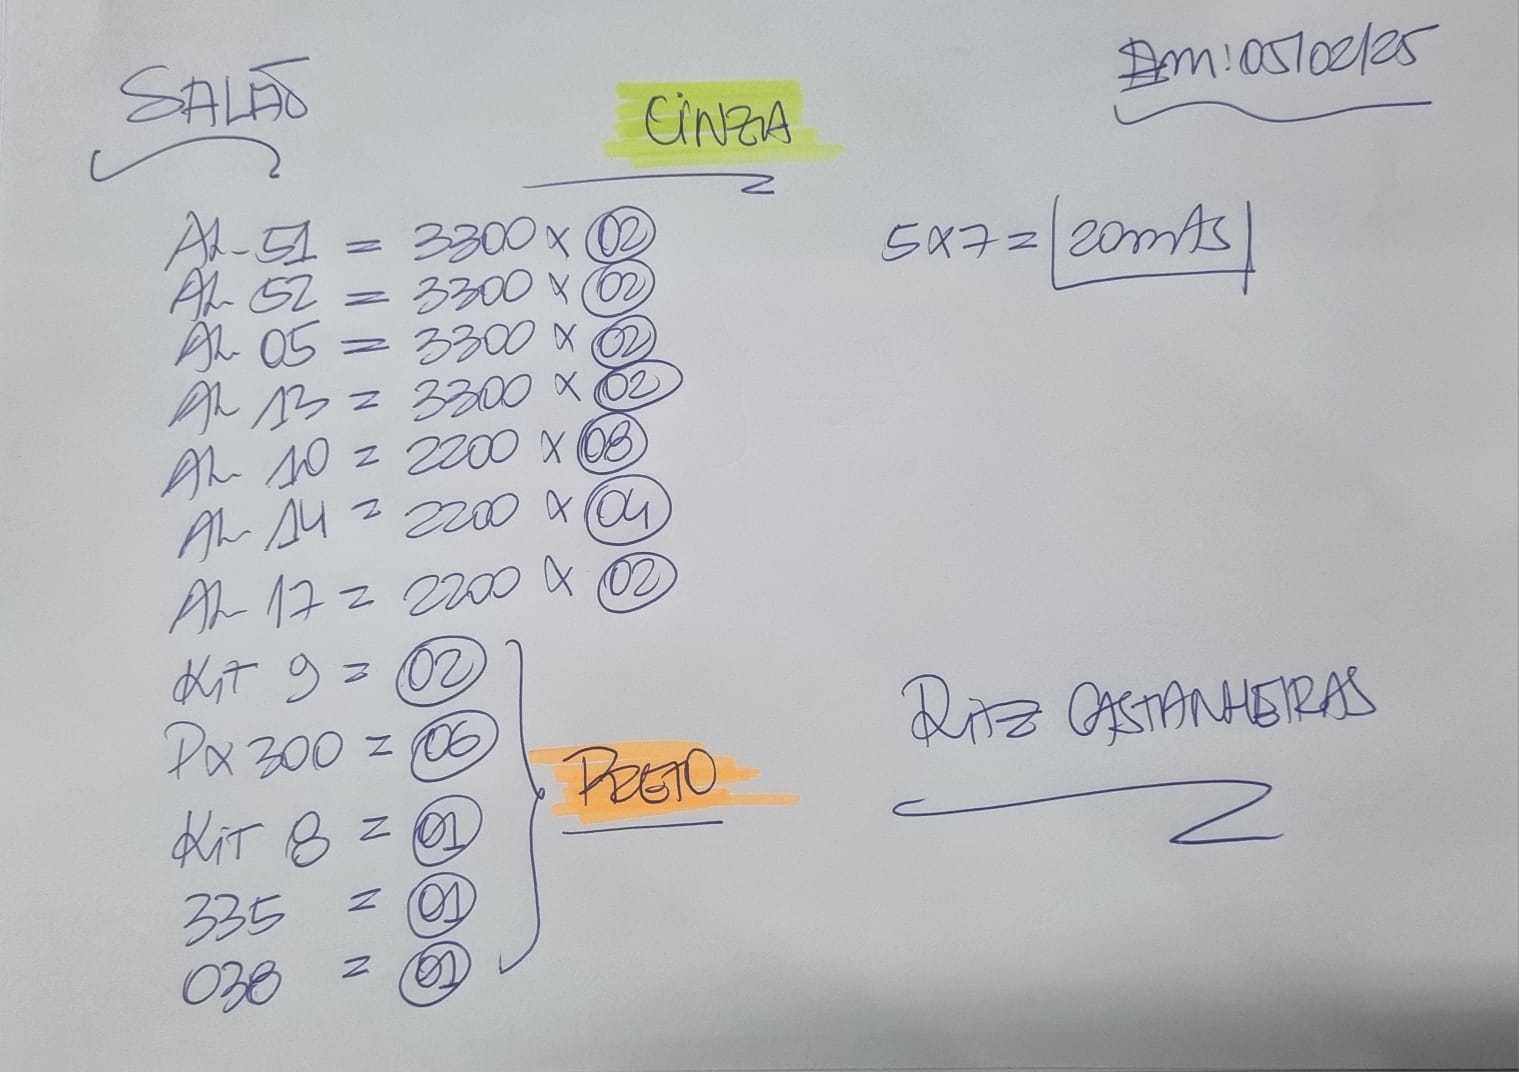 SALÃO
CINZA
Em: 05/02/25
AL-51 = 3300 x 02
AL 52 = 3300 x 02
AL 05 = 3300 x 02
AL 13 = 3300 x 02
AL 10 = 2200 x 08
AL 14 = 2200 x 04
AL 17 = 2200 x 02
5x7 = 20mts
Kit 9 = 02
Px 300 = 06
Kit 8 = 01
335 = 01
038 = 01
PRETO
RITZ CASTANHEIRAS